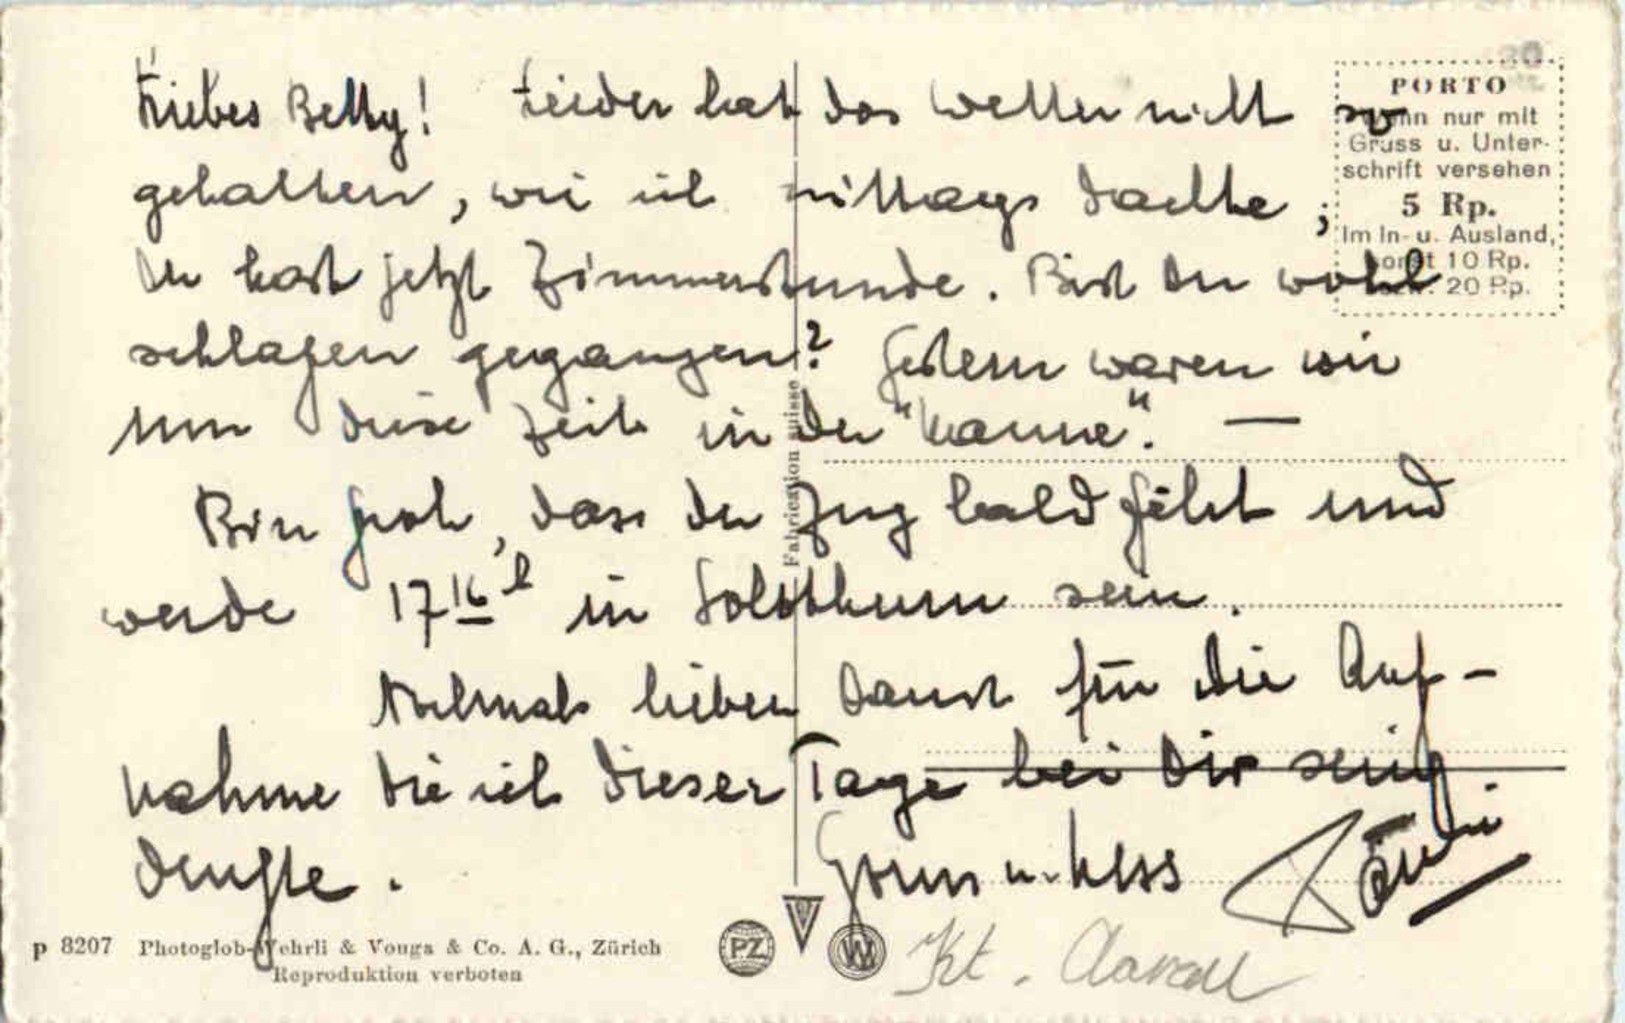 Liebes Betty! Leider hat das Wetter nicht so
gehalten, wie ich mittags dachte;
Du hast jetzt Zimmerstunde. Bist Du wohl
schlafen gegangen? Gestern waren wir
um diese Zeit in der "Kanne". —
Bin froh, dass der Zug bald fährt und
werde 17 16 h in Solothurn sein.
Nochmals lieben Dank für die Auf-
nahme die ich dieser Tage bei Dir sein
durfte. Gruss u. Kuss
PORTO
wenn nur mit
Gruss u. Unter-
schrift versehen
5 Rp.
Im In- u. Ausland,
sonst 10 Rp.
20 Rp.
Fabrication suisse
p 8207 Photoglob-Wehrli & Vouga & Co. A. G., Zürich
Reproduktion verboten
PZ
W
Kt. Aarau